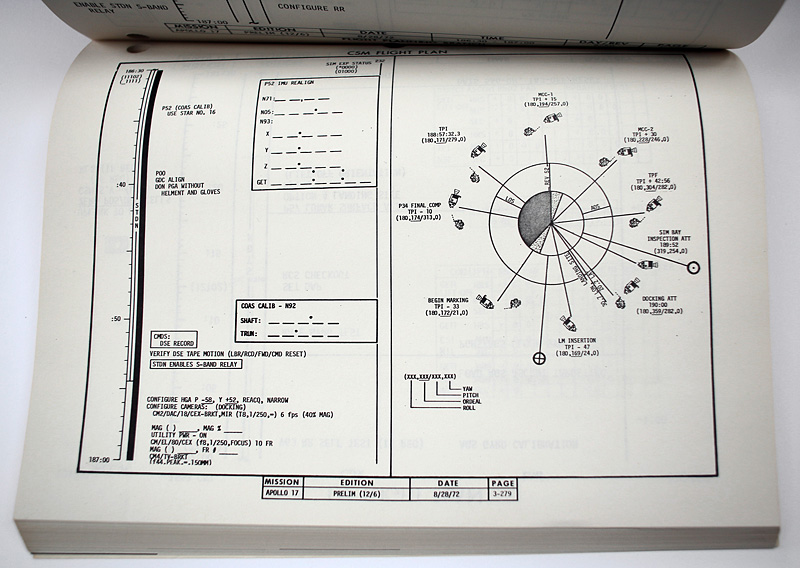 ENABLE STDN S-BAND
RELAY
187:00
CONFIGURE RR
MISSION EDITION DATE TIME DAY/REV PAGE
APOLLO 17 PRELIM (12/6)
CSM FLIGHT PLAN
186:30
SIM EXP STATUS
(*0000)
(01000)
P52 (COAS CALIB)
USE STAR NO. 16
P52 IMU REALIGN
N71:
N05:
N93:
X
Y
Z
GET
:40
POO
GDC ALIGN
DON PGA WITHOUT
HELMET AND GLOVES
STDN
:50
COAS CALIB - N92
SHAFT:
TRUN:
CMDS:
DSE RECORD
VERIFY DSE TAPE MOTION (LBR/RCD/FWD/CMD RESET)
STDN ENABLES S-BAND RELAY
CONFIGURE HGA P -58, Y +52, REACQ, NARROW
CONFIGURE CAMERAS: (DOCKING)
CM2/DAC/18/CEX-BRKT,MIR (T8,1/250,∞) 6 fps (40% MAG)
MAG ( ) , MAG %
UTILITY PWR - ON
CM/EL/80/CEX (f8,1/250,FOCUS) 10 FR
MAG ( ) , FR #
CM4/TV-BRKT
(f44,PEAK,∞,150MM)
187:00
MCC-1
TPI + 15
(180,194/257,0)
TPI
188:57:32.3
(180,171/279,0)
MCC-2
TPI + 30
(180,228/246,0)
TPF
TPI + 42:56
(180,304/282,0)
P34 FINAL COMP
TPI - 10
(180,174/313,0)
SIM BAY
INSPECTION ATT
189:52
(319,254,0)
REV 52
LOS
AOS
LANDING SITE
DOCKING ATT
190:00
(180,359/282,0)
BEGIN MARKING
TPI - 33
(180,172/21,0)
LM INSERTION
TPI - 47
(180,169/24,0)
(XXX,XXX/XXX,XXX)
YAW
PITCH
ORDEAL
ROLL
MISSION EDITION DATE PAGE
APOLLO 17 PRELIM (12/6) 8/28/72 3-279